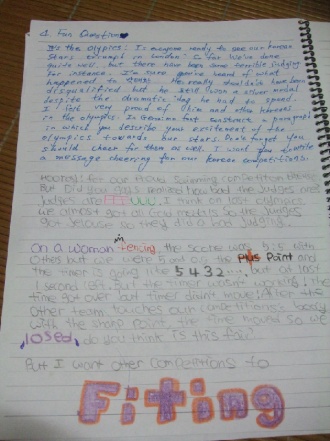 1. Fun Question
It's the olypics! Is everyone ready to see our korean
stars triumph in London! So far we've done
quite well, but there have been some terrible judging
for instance. I'm sure you've heard of what
happened to. He really shouldn't have been
disqualified but he still won a silver medal
despite the dramatic day he had to spend.
I felt very proud of him and other koreans
in the olympics. In Genuine that construct a paragraph
in which you describe your excitement of the
olympics towards our stars. Don't forget you
should cheer for them as well. I want you to write
a message cheering for our korean competitions.
Hooray! for our swimming competition
But Did you guys realised how bad the judges are?
judges are UUU. I think on last olympics,
we almost got all Gold medals so the judges
got jelouse so they did a bad judging.
On a woman fencing, the score was 5:5 with
others but we were 5 out on the plus Point and
the timer is going like 5 4 3 2 ..... but at last
1 second left. But the timer wasn't working! the
time got over but timer didn't move! After the
other team touches our competitions body
with the sharp point, the time moved so we
losed, do you think is this fair?
But I want other competitions to
Fiting